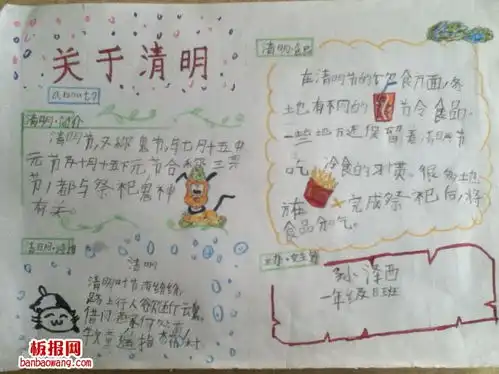 关于清明
清明·简介
清明节,又称鬼节与七月十五中
元节及十月十五下元节合称三冥
节,都与祭祀鬼神
有关。
清明
清明时节雨纷纷
路上行人欲断魂
借问酒家何处有
牧童遥指杏花村
在清明节的个各食方面,各
土也有不同的节令食品
一些地方还保留着清明节
吃冷食的习惯。很多地
方在完成祭祀后,将
食品分吃。
孙泽西
一年级8班
板报网
banbaowang.com